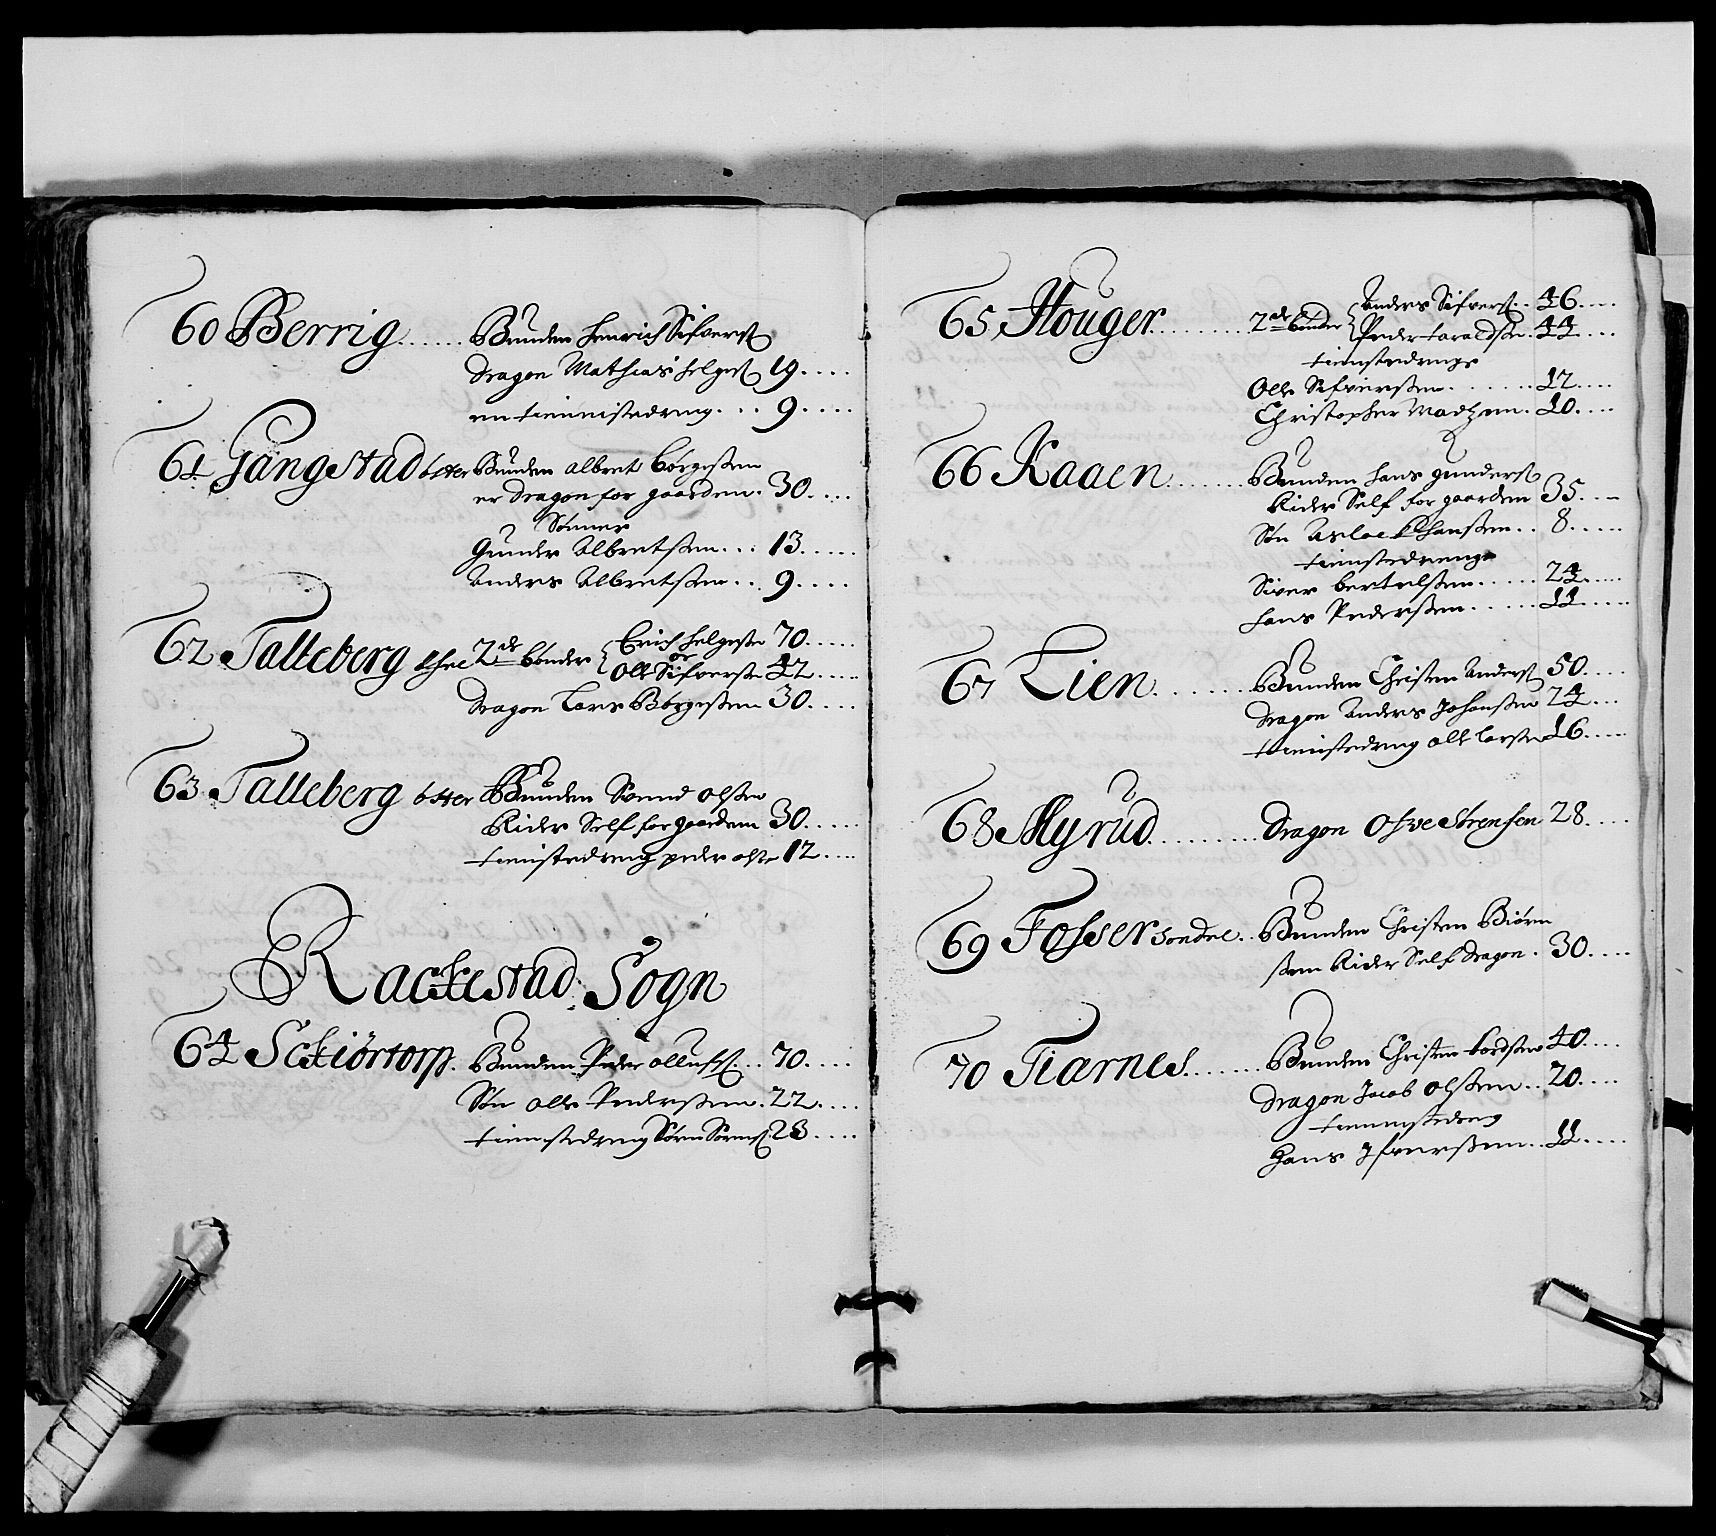 60 Berrig...... Bunden Henrich Sifverß
Dragon Mathias Helgeß 19.....
en tiennistedreng... 9.....
61 Gangstad öster Bunden Albret Börgeßen
er Dragon for gaarden. 30.....
Sönner
Gunder Albretßen... 13.....
Anders Albretßen... 9.....
62 Talleberg 2de bönder { Erich Helgeßen 70.....
Olle Sifverßen 42.....
Dragon Lars Börgeßen 30.....
63 Talleberg öster Bunden Svend Olßen
Rider Self for gaarden 30.....
tienistedreng peder olßen 12....
Rackestad Sogn
64 Sckiörtorp. Bunden Peder Olluffß... 70.....
Sön Olle Pederßen. 22.....
tienistedreng Sören Sörenß 23.....
65 Houger......... 2de bönder { Anders Sifverß.. 46....
Peder Haraldßen. 44....
tienistedrenge
Olle Sifverßen........ 12....
Christopher Madtzen. 10....
66 Kaaen....... Bunden Hans Gunderß
Rider Self for gaarden 35....
Sön Aslack Hanßen.. 8.....
tienistedrenge
Siver Bertelßen..... 24....
Hans Pederßen...... 11.....
67 Lien......... Bunden Christen Anderß 50.....
Dragon Anders Johanßen 24....
tienistedreng Olle Larßen 16.....
68 Myrud......... Dragon Ofve Strensen 28.....
69 Fosser söndre.. Bunden Christen Biörn
ßen Rider Self Dragon. 30.....
70 Tiarnes....... Bunden Christen bordßen 40.....
Dragon Jacob Olßen... 20.....
tiennistedreng
Hans Ifverßen... 11.....